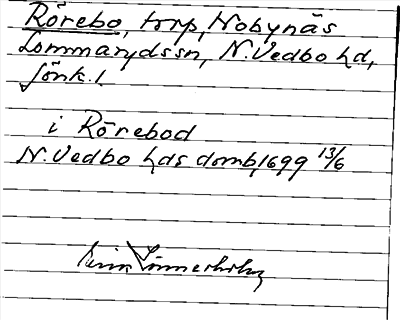 Rörebo, torp, Nobynäs
Lommarydssn, N. Vedbo hd,
Jönk. l.
i Rörebod
N. Vedbo hds domb 1699 13/6